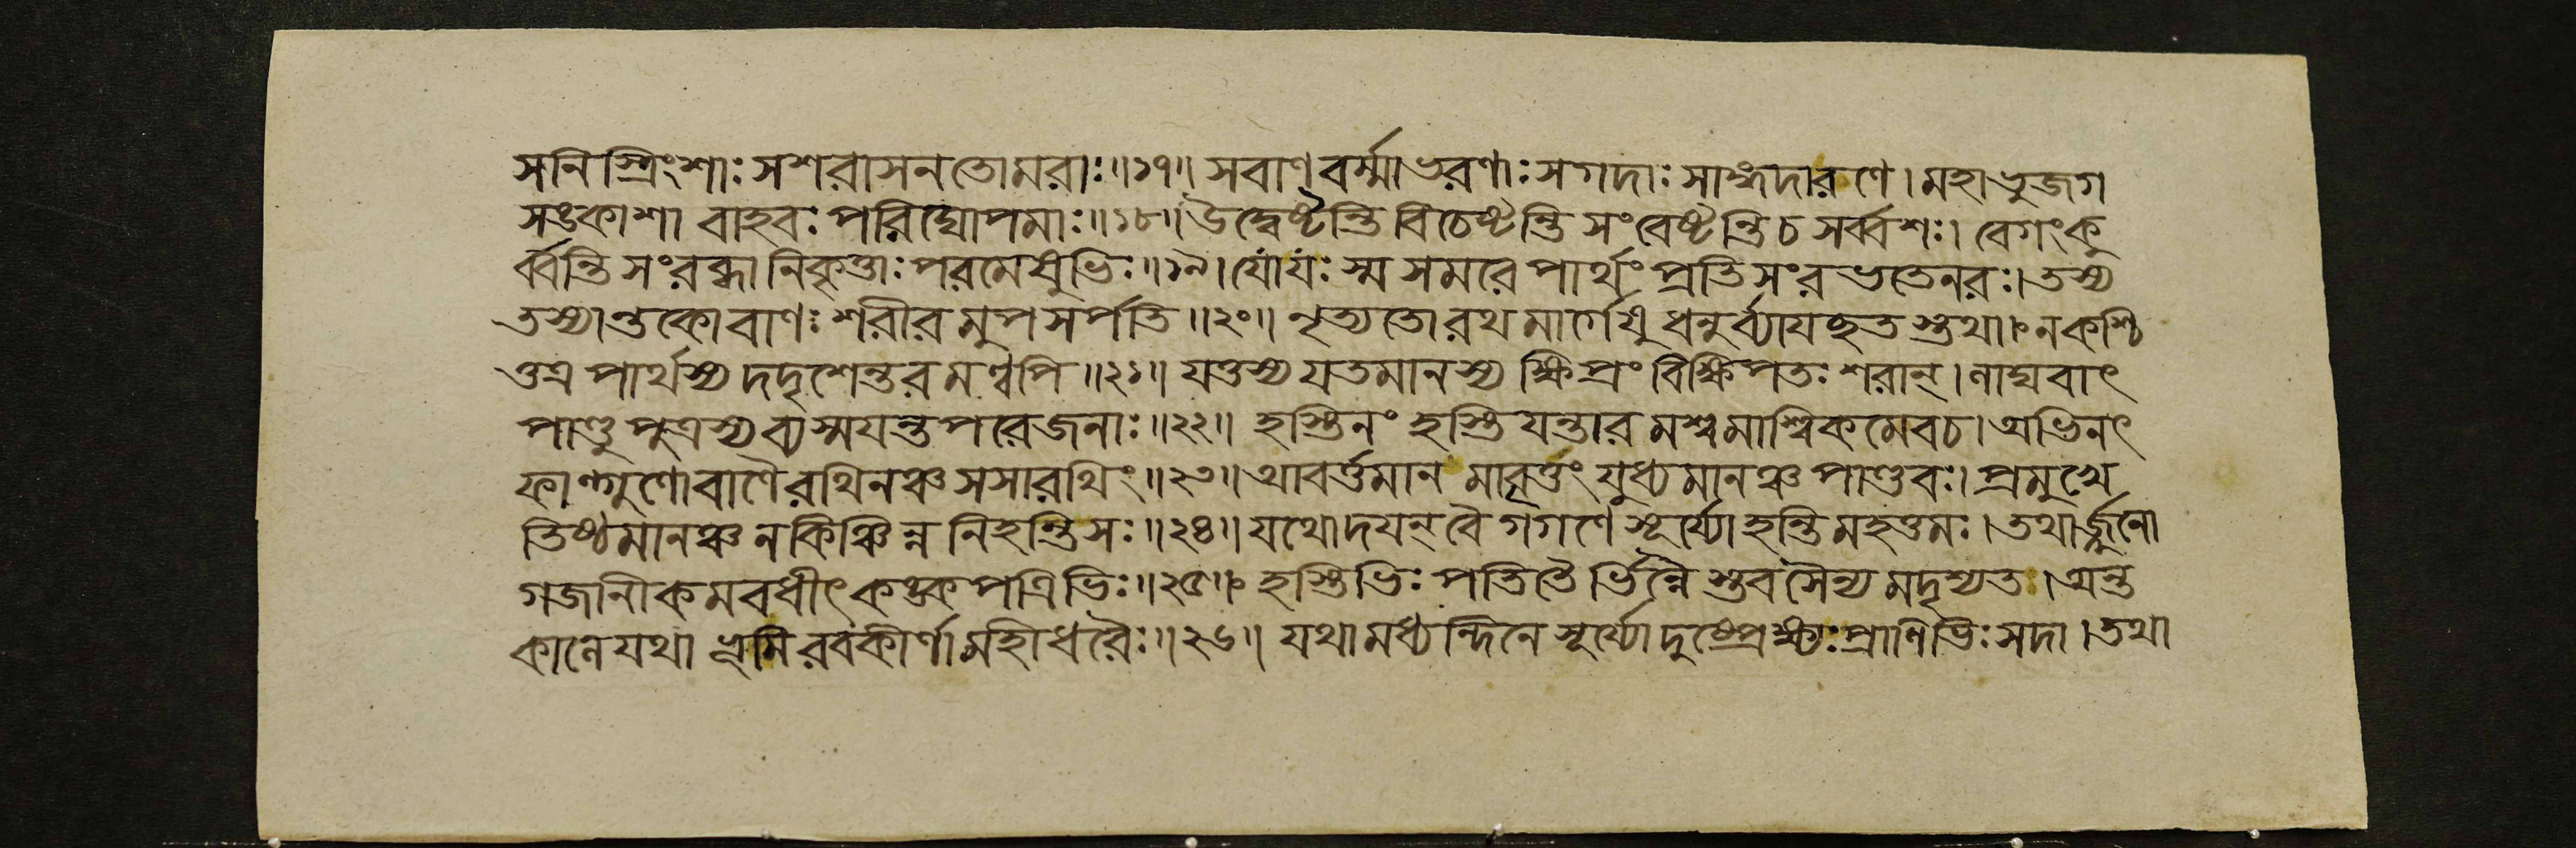 সনিস্ত্রিংশাঃ সশরাসনতোমরাঃ॥১৭॥ সবাণবর্ম্মাভরণাঃ সগদাঃ সাঙ্গদারণে। মহাভুজগ
সঙ্কাশা বাহবঃ পরিঘোপমাঃ॥১৮॥ উদ্বেষ্টন্তি বিচেষ্টন্তি সংবেষ্টন্তি চ সর্ব্বশঃ। বেগং কু
র্ব্বন্তি সংরব্ধা নিকৃত্তাঃ পরমেষুভিঃ॥১৯॥ যো যঃ স্ম সমরে পার্থং প্রতিসংরভতে নরঃ। তস্য
তস্যান্তকো বাণঃ শরীরমুপসর্পতি॥২০॥ নৃত্যতো রথমার্গেষু ধনুর্ব্যাযচ্ছতস্তথা। ন কশ্চি
ত্তত্র পার্থস্য দদৃশেন্তরমণ্বপি॥২১॥ যত্তস্য যতমানস্য ক্ষিপ্রং বিক্ষিপতঃ শরান্। লাঘবাৎ
পাণ্ডুপুত্রস্য ব্যস্ময়ন্ত পরে জনাঃ॥২২॥ হস্তিনং হস্তিযন্তারমশ্বমাশ্বিকমেব চ। অভিনৎ
ফাল্গুণো বাণৈ রথিনঞ্চ সসারথিং॥২৩॥ আবর্ত্তমানমাবৃত্তং যুধ্যমানঞ্চ পাণ্ডবঃ। প্রমুখে
তিষ্ঠমানঞ্চ ন কিঞ্চিন্ন নিহন্তি সঃ॥২৪॥ যথোদয়ন্ বৈ গগণে সূর্য্যো হন্তি মহত্তমঃ। তথার্জ্জুনো
গজানীকমবধীৎ কঙ্কপত্রিভিঃ॥২৫॥ হস্তিভিঃ পতিতৈর্ভিন্নৈস্তব সৈন্যমদৃশ্যত। অন্ত
কালে যথা ভূমিরবকীর্ণা মহীধরৈঃ॥২৬॥ যথা মধ্যন্দিনে সূর্য্যো দুষ্প্রেক্ষ্যঃ প্রাণিভিঃ সদা। তথা